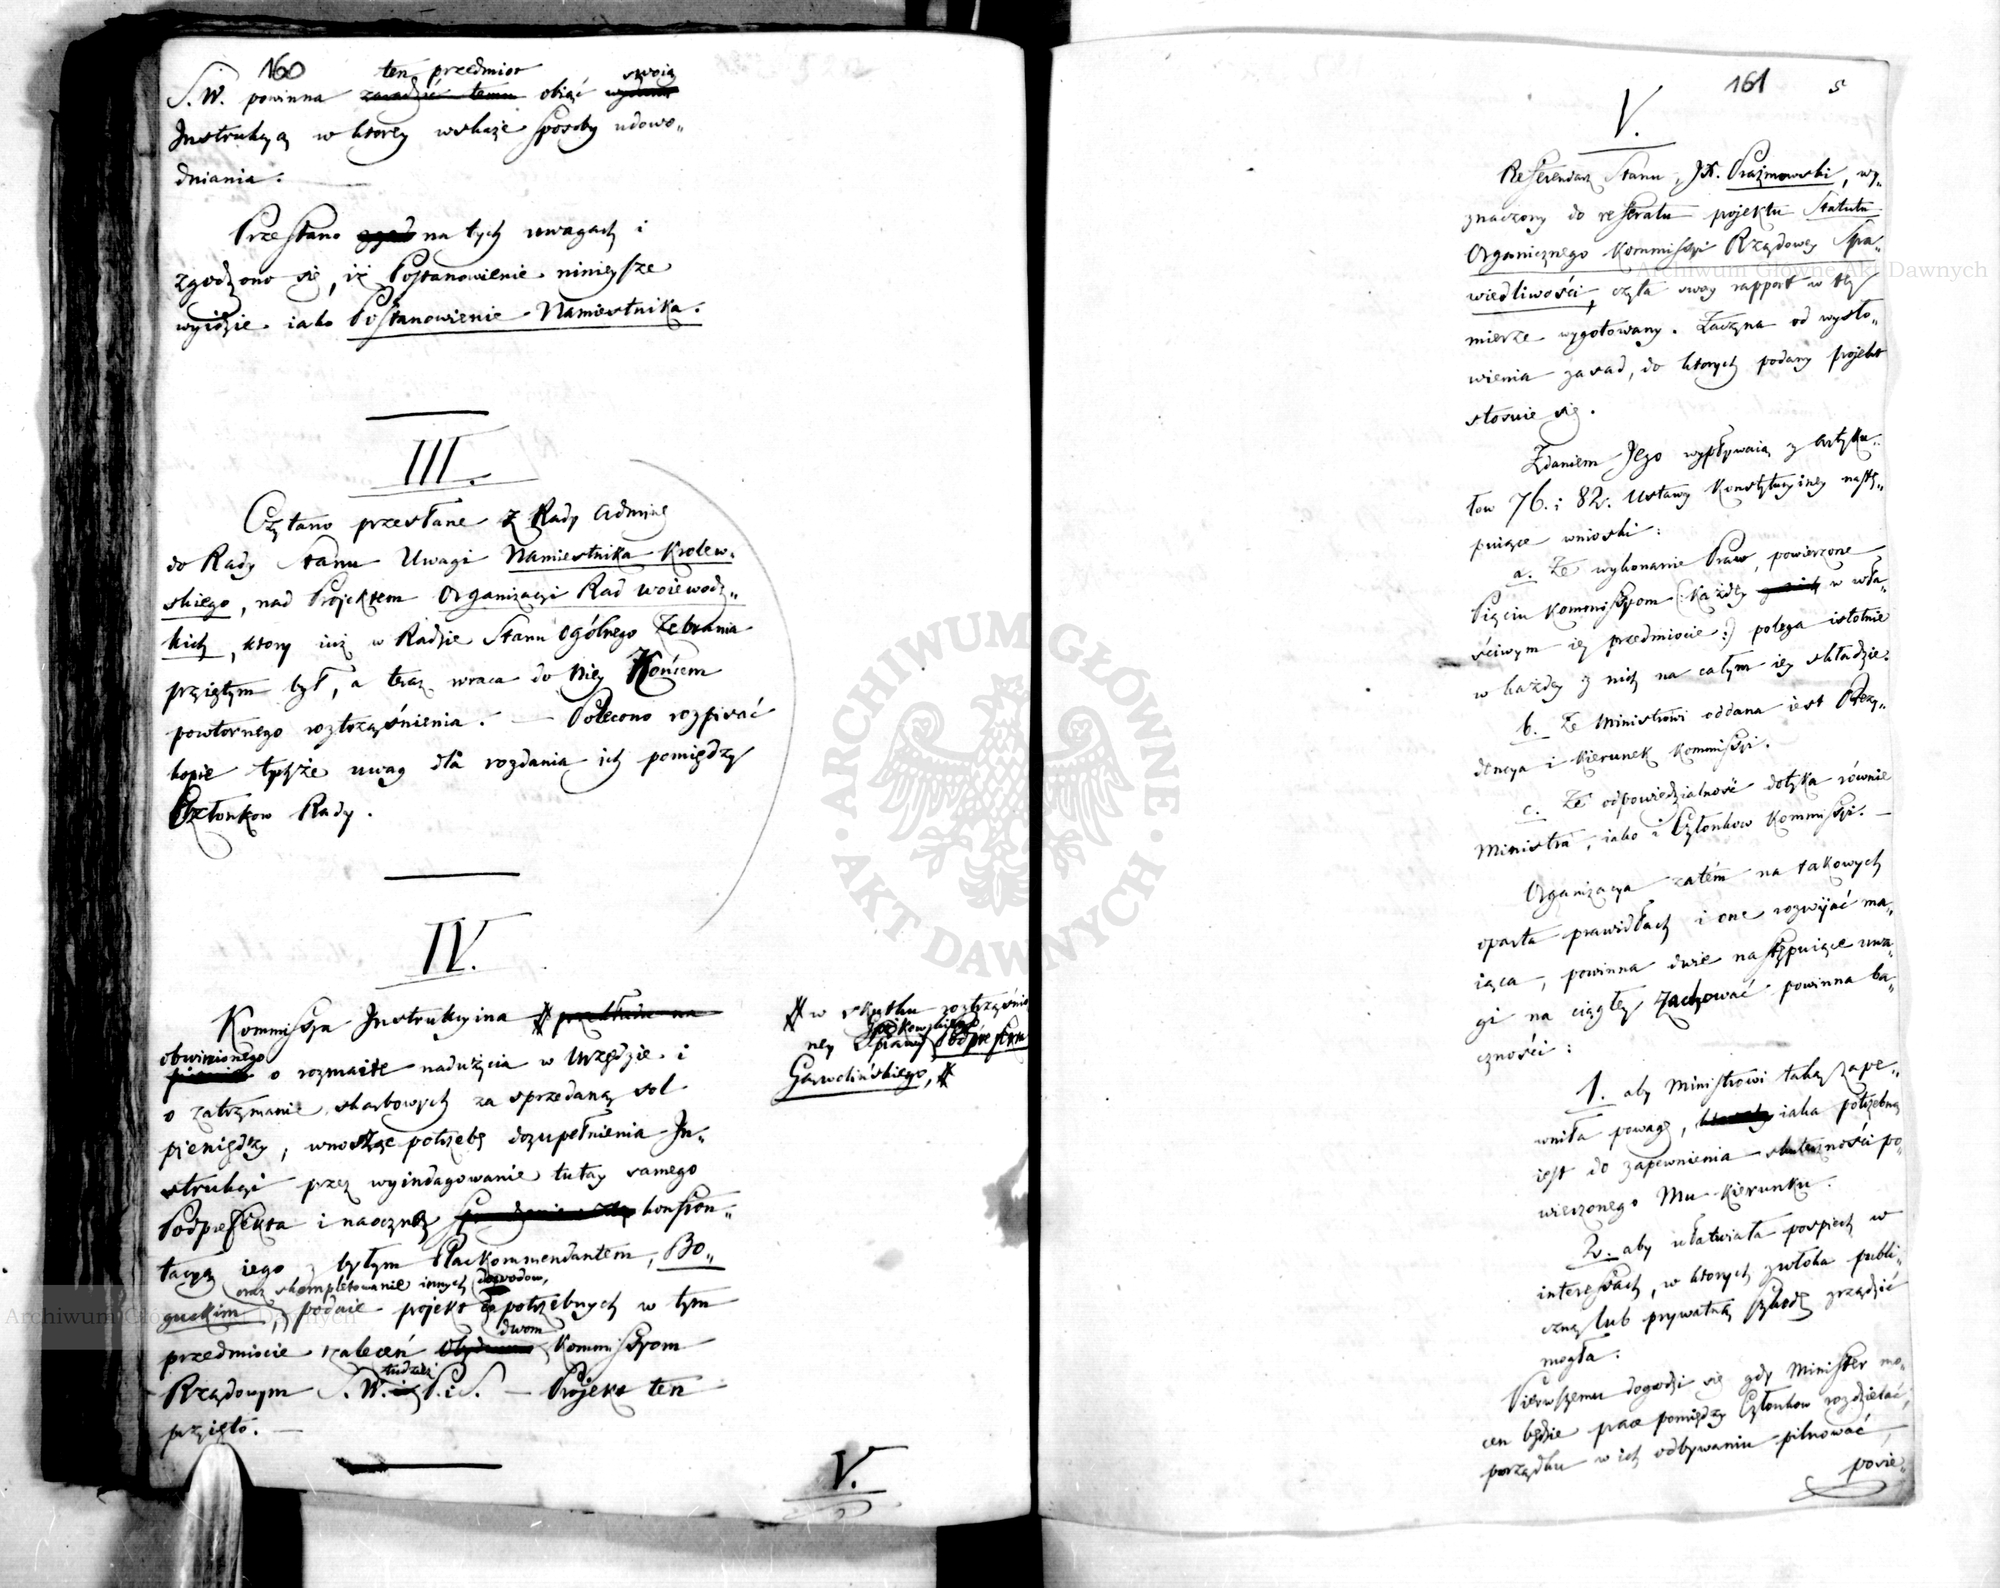 160
ten przedmiot swoią
S. W. powinna zaradzić temu obiąć wydaną
Instrukcyą w ktorey wskaże sposoby udowo„
dniania.
Przestano na tych uwagach i
zgodzono się, iż Postanowienie ninieysze
wyidzie iako Postanowienie Namiestnika.
III.
Czytano przesłane z Rady Adminę
do Rady Stanu Uwagi Namiestnika Krolew„
skiego, nad Projektem Organizacyi Rad Woiewodz„
kich, ktory iuż w Radzie Stanu Ogólnego Zebrania
przyiętym był, a teraz wraca do Niey Końcem
powtornego roztrząśnienia. — Polecono rozpisać
kopie tychże uwag dla rozdania ich pomiędzy
Członkow Rady.
IV.
Kommissya Instrukcyina # przekłada na
obwinionego
o rozmaite nadużycia w Urzędzie i
o zatrzymanie skarbowych za sprzedaną sol
pieniędzy, wnosząc potrzebę dozupełnienia In„
strukcyi przez wyindagowanie tutay samego
Podprefekta i naoczną konfron„
tacyą iego z byłym Plackommendantem, Bo„
oraz skompletowanie innych dowodow,
guckim, podaie projekt potrzebnych w tym
dwom
przedmiocie zaleceń Obydwom Kommissyom
tudzież
Rządowym S. W. i P. i S. — Projekt ten
przyięto. —
# w skutku roztrząśnio
ney Sprawy Podprefekta
Garwolińskiego, #
V.
161 5
V.
Referendarz Stanu, JX. Prażmowski, wy„
znaczony do referatu projektu Statutu
Organicznego Kommissyi Rządowey Spra„
wiedliwości, czyta swoy rapport w tey
mierze wygotowany. Zaczyna od wysło„
wienia zasad, do ktorych podany projekt
stosuie się.
Zdaniem Jego wypływaią z Artyku„
łow 76. i 82. Ustawy Konstytucyiney nastę„
puiące wnioski:
a. Że wykonanie Praw, powierzone
Pięciu Kommissyom (: każdey w wła„
ściwym iey przedmiocie :) polega istotnie
w każdey z nich na całym iey składzie.
b. Że Ministrowi oddana iest Prezy„
dencya i kierunek Kommissyi.
c. Że odpowiedzialność dotyka równie
Ministra, iako i Członkow Kommissyi. —
Organizacya zatém na takowych
oparta prawidłach i one rozwiiać ma„
iąca, powinna dwie następuiące uwa„
gi na ciągłey zachować powinna ba„
czności:
1. aby Ministrowi taką zape„
wniła powagę, iaka potrzebną
iest do zapewnienia skuteczności po„
wierzonego Mu kierunku.
2. aby ułatwiała pospiech w
interessach, w ktorych zwłoka publi„
czną lub prywatną szkodę zrządzić
mogła.
Pierwszemu dogodzi się gdy Minister mo„
cen będzie prace pomiędzy Członkow rozdzielać,
porządku w ich odbywaniu pilnować,
powie„
Archiwum Główne Akt Dawnych
Archiwum Główne Akt Dawnych
ARCHIWUM GŁÓWNE AKT DAWNYCH